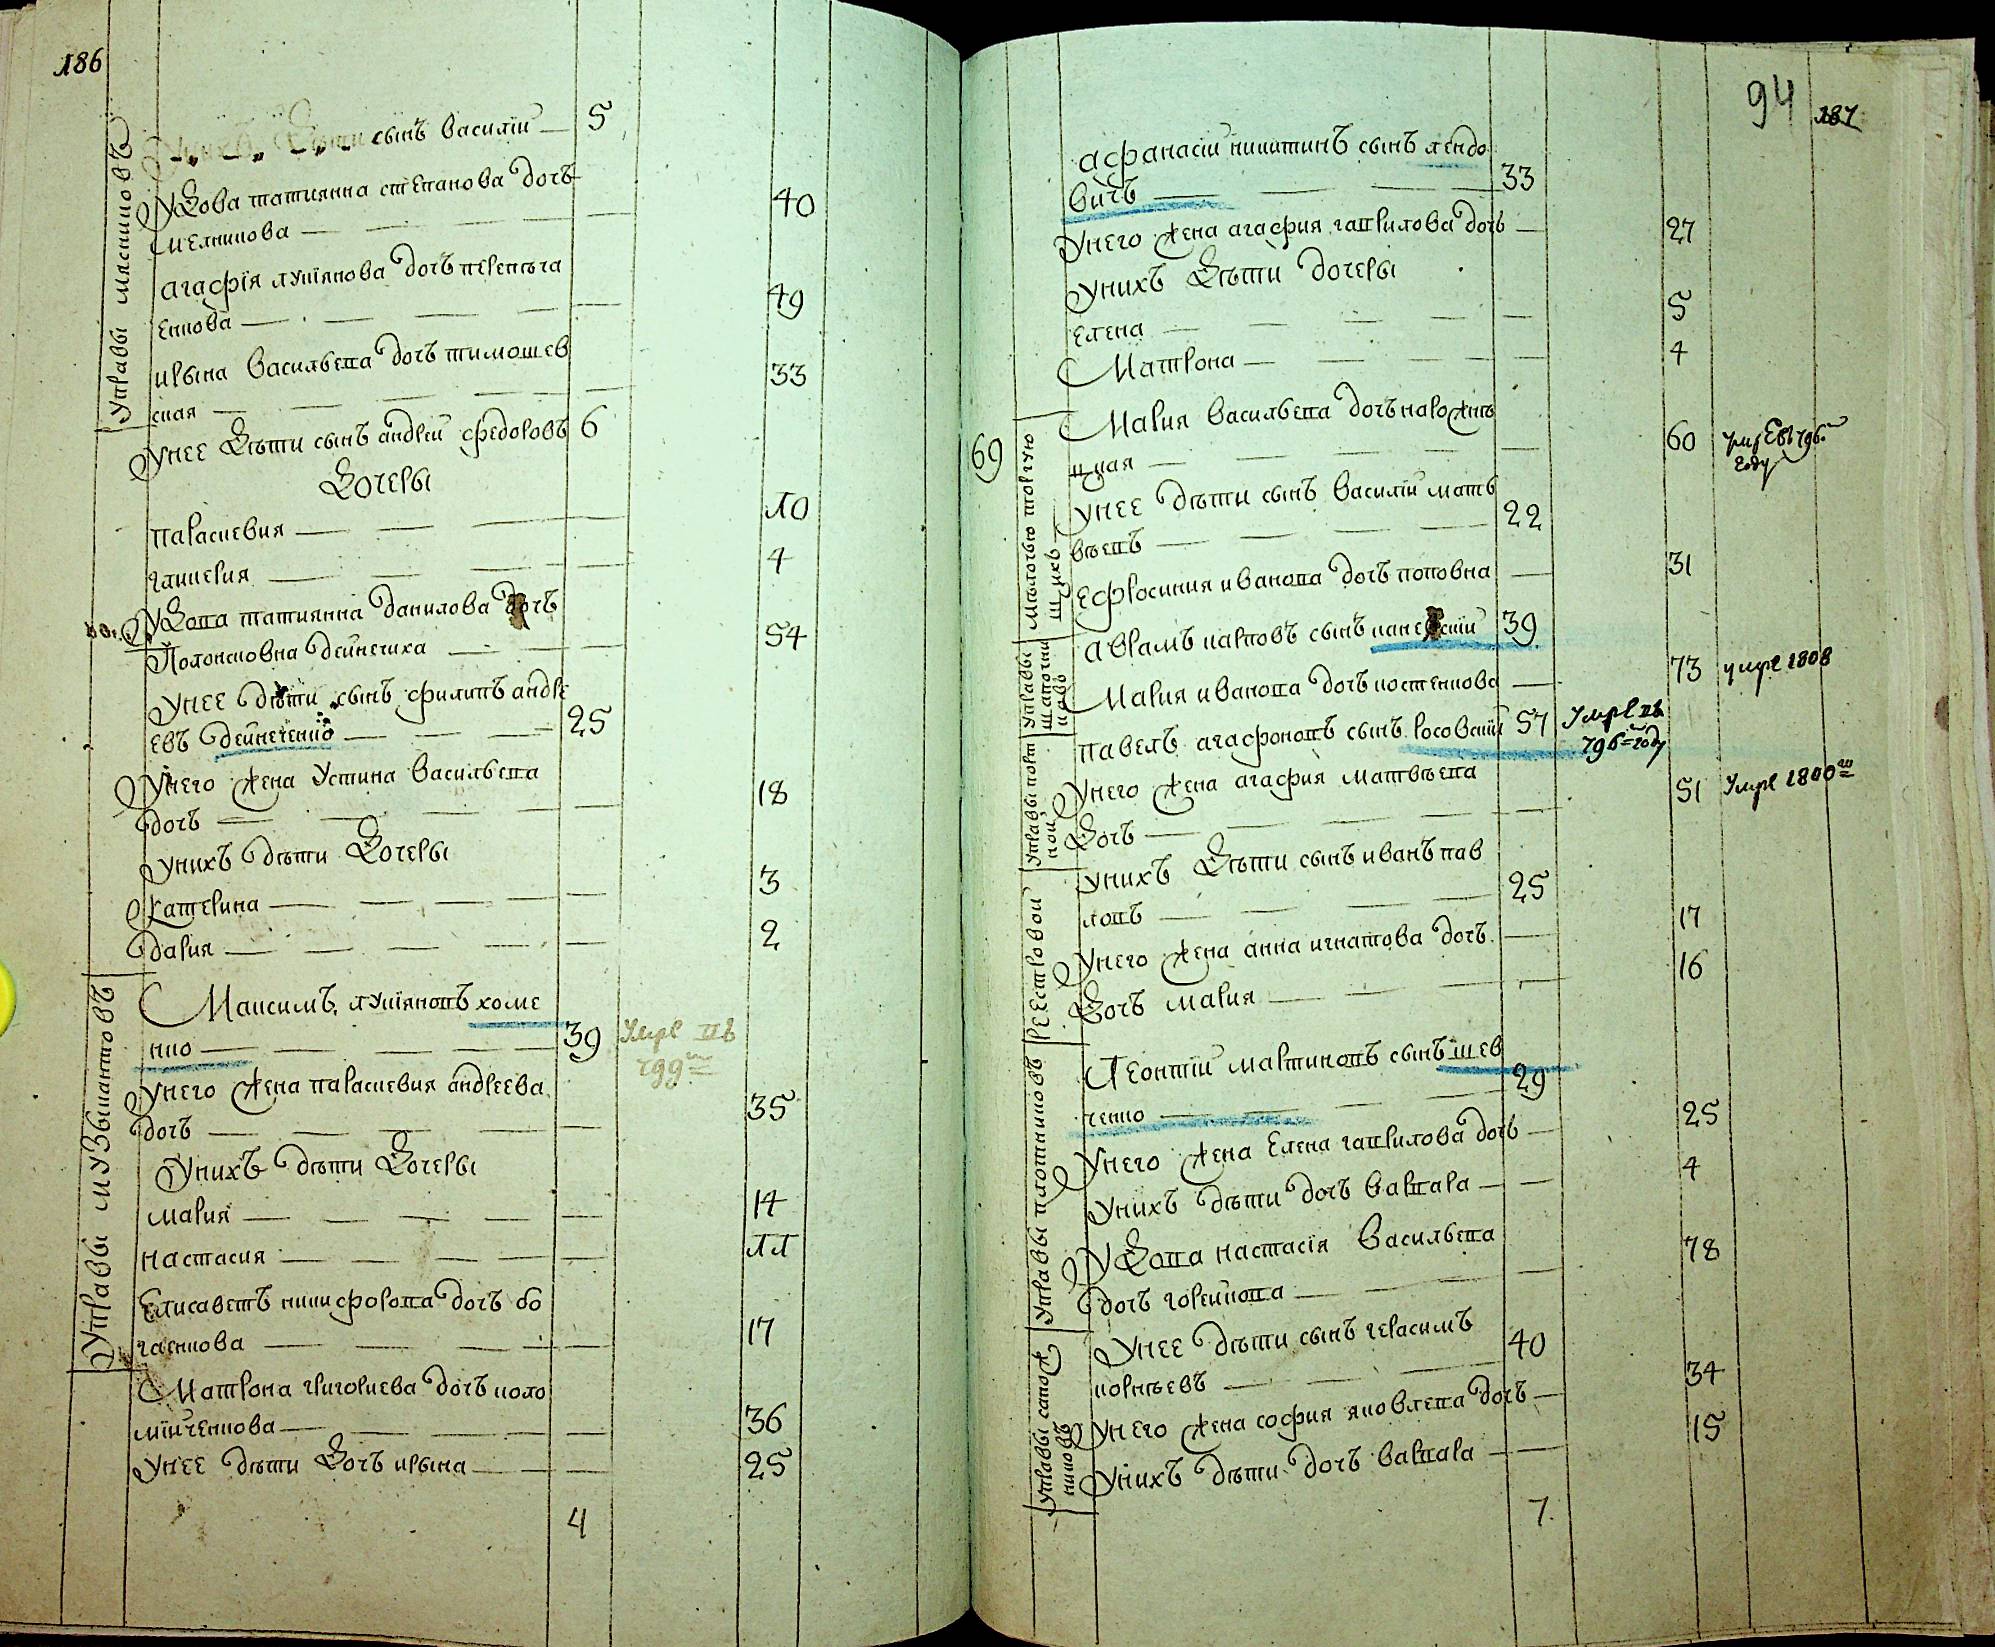 186
Управы мясниковъ
Унихъ Дѣти сынъ василїй — 5
Удова татиянна степанова дочь
мелникова — 40
агафїя лукїянова дочь перепеча
енкова — 49
ирына васильева дочь тимошев
ская — 33
Унее Дѣти сынъ андрей федоровъ 6
Дочеры
параскевия — 10
гликерия — 4
Удова татиянна данилова дочь
Полонсковна дейнечиха — 54
Унее дѣти сынъ филипъ андре
евъ дейнеченко — 25
Унего жена Устина васильева
дочь — 18
Унихъ дѣти Дочеры
катерина — 3
дария — 2
Управы музыкантовъ
Максимъ лукїяновъ хоме
нко — 39 Умре въ 799м
Унего жена параскевия андреева
дочь — 35
Унихъ дѣти Дочеры
мария — 14
настасия — 11
Елисаветъ никифорова дочь бо
гаснкова — 17
Матрона григориева дочь коло
мїйченкова — 36
Унее дѣти Дочь ирына — 25
4
94 187
афанасїй никитинъ сынъ лендо
вичъ — 33
Унего жена агафия гаврилова дочь — 27
Унихъ Дѣти дочеры
елена — 5
Матрона — 4
69
Мѣлочью торгую
щихъ
Мария васильева дочь нарожнѣ
цкая — 60 умре въ 796м
году
Унее дѣти сынъ василїй матв
вѣевъ — 22
Ефросиния иванова дочь поповна — 31
Управы
шапочни
ковъ
аврамъ карповъ сынъ каневскїй 39
Мария иванова дочь костенкова — 73 умре 1808
Управы порт
ной
павелъ агафоновъ сынъ Росовскїй 57 Умре въ
796м году
Унего жена агафия матвѣева
Дочь — 51 Умре 1800го
Реестровой
Унихъ Дѣти сынъ иванъ пав
ловъ — 25
Унего жена анна игнатова дочь — 17
Дочь мария — 16
Управы плотниковъ
Леонтїй мартиновъ сынъ шев
ченко — 29
Унего жена Елена гаврилова дочь — 25
Унихъ дѣти дочь варвара — 4
Удова настасїя васильева
дочь горейкова — 78
Управы сапож
никовъ
Унее дѣти сынъ герасимъ
корнѣевъ — 40
Унего жена софия яковлева дочь — 34
Унихъ дѣти дочь варвара — 15
7